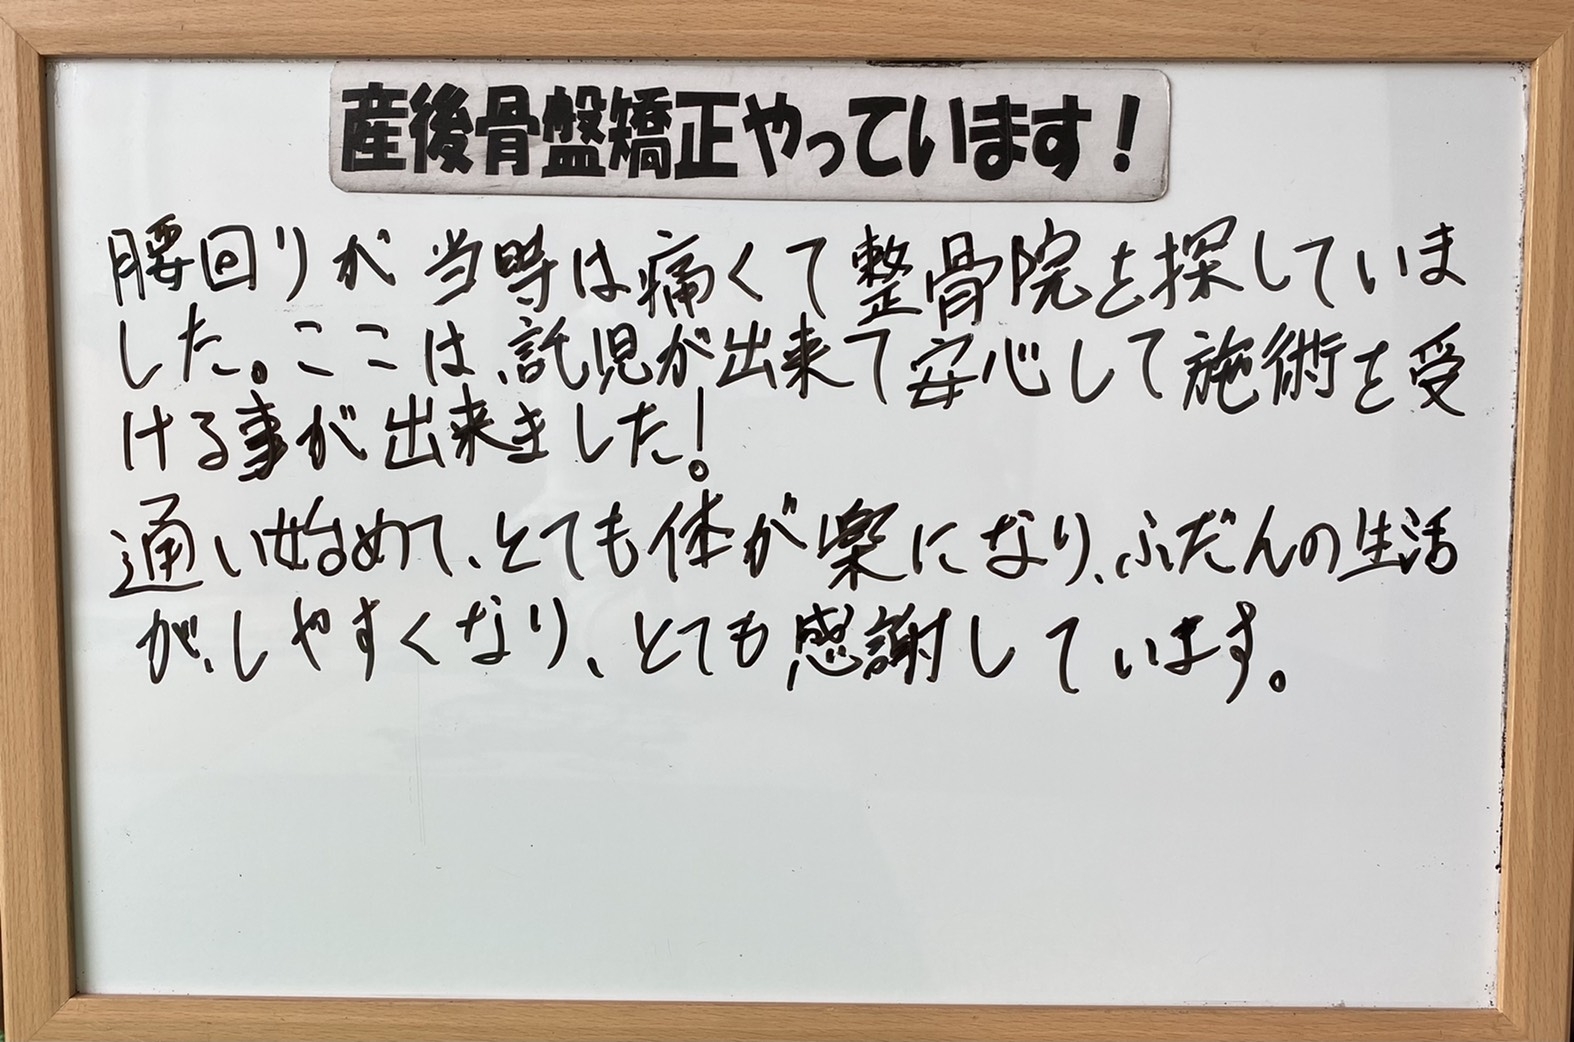 産後骨盤矯正やっています！
腰回りが当時は痛くて整骨院を探していま
した。ここは、託児が出来て安心して施術を受
ける事が出来ました！
通い始めて、とても体が楽になり、ふだんの生活
が、しやすくなり、とても感謝しています。